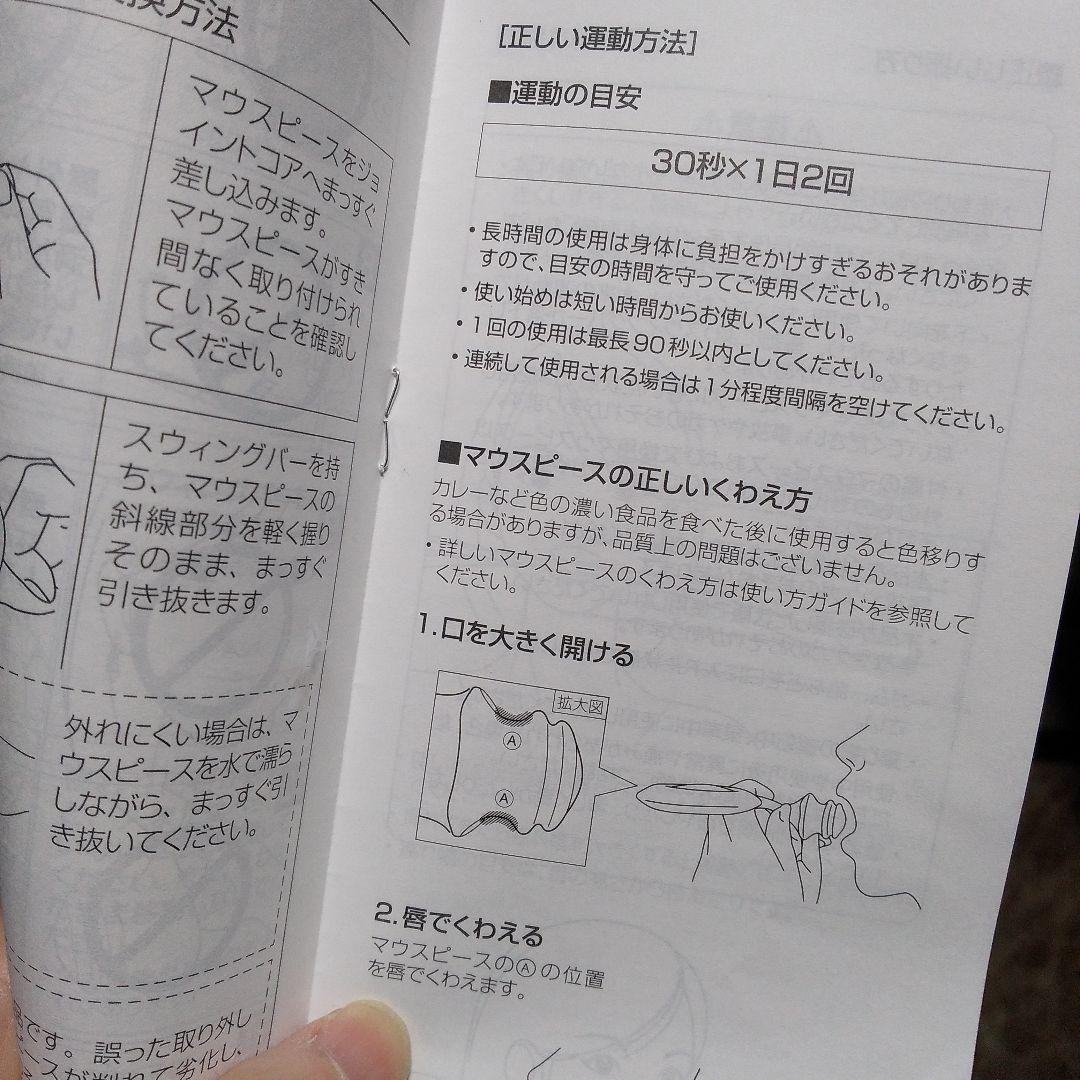 換方法
マウスピースをジョ
イントコアへまっすぐ
差し込みます。
マウスピースがすき
間なく取り付けられ
ていることを確認し
てください。
スウィングバーを持
ち、マウスピースの
斜線部分を軽く握り
そのまま、まっすぐ
引き抜きます。
外れにくい場合は、マ
ウスピースを水で濡ら
しながら、まっすぐ引
き抜いてください。
です。誤った取り外し
ースが削れて劣化し、
[正しい運動方法]
■運動の目安
30秒×1日2回
・長時間の使用は身体に負担をかけすぎるおそれがありま
すので、目安の時間を守ってご使用ください。
・使い始めは短い時間からお使いください。
・1回の使用は最長90秒以内としてください。
・連続して使用される場合は1分程度間隔を空けてください。
■マウスピースの正しいくわえ方
カレーなど色の濃い食品を食べた後に使用すると色移りす
る場合がありますが、品質上の問題はございません。
・詳しいマウスピースのくわえ方は使い方ガイドを参照して
ください。
1.口を大きく開ける
拡大図
Ⓐ
Ⓐ
2.唇でくわえる
マウスピースのⒶの位置
を唇でくわえます。